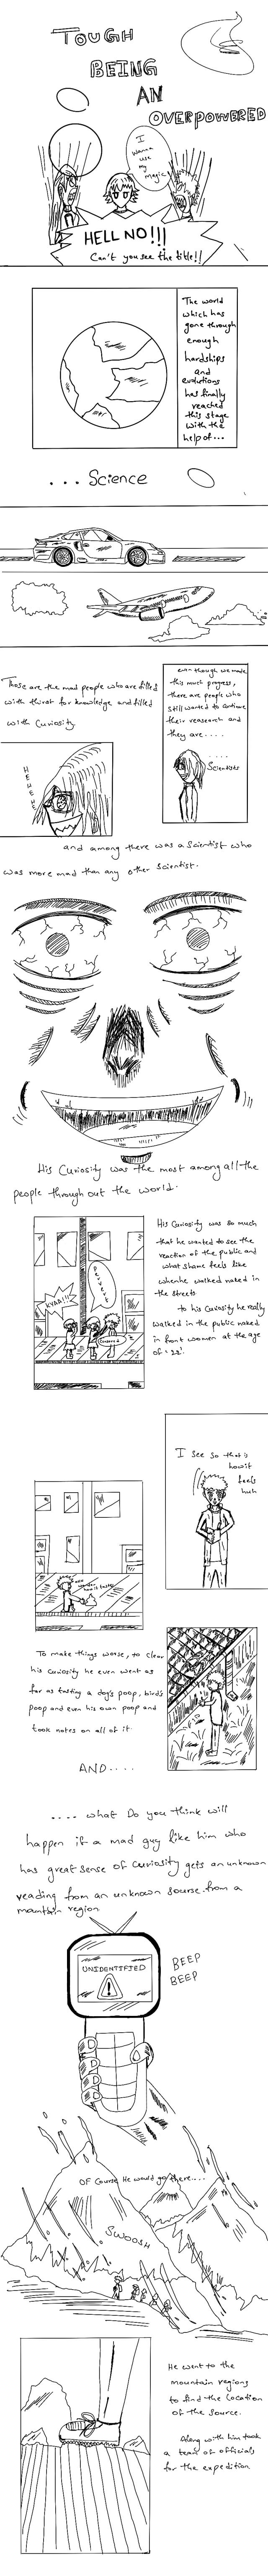 TOUGH
BEING
AN
OVERPOWERED
I
wanna
use
my
magic
HELL NO!!!
Can't you see the title!!
The world
which has
gone through
enough
hardships
and
evolutions
has finally
reached
this stage
with the
help of...
... Science
even though we made
this much progress,
there are people who
still wanted to continue
their reasearch and
they are....
....
Scientists
Those are the mad people who are filled
with thirst for knowledge and filled
with Curiosity.
HEHEHE
and among there was a Scientist who
was more mad than any other Scientist.
His Curiosity was the most among all the
people through out the world.
His Curiosity was so much
that he wanted to see the
reaction of the public and
what shame feels like
when he walked naked in
the streets
to his Curiosity he really
walked in the public naked
in front women at the age
of '23'.
KYAA!!!
Censored
I see so that is
how it
feels
huh
To make things worse, to clear
his Curiosity he even went as
far as tasting a dog's poop, bird's
poop and even his own poop and
took notes on all of it
AND....
.... what Do you think will
happen if a mad guy like him who
has great sense of curiosity gets an unknown
reading from an unknown sourse from a
mountain region
UNIDENTIFIED
!
BEEP
BEEP
OF Course He would go there....
SWOOSH
He went to the
mountain regions
to find the location
of the source.
Along with him took
a team of officials
for the expedition